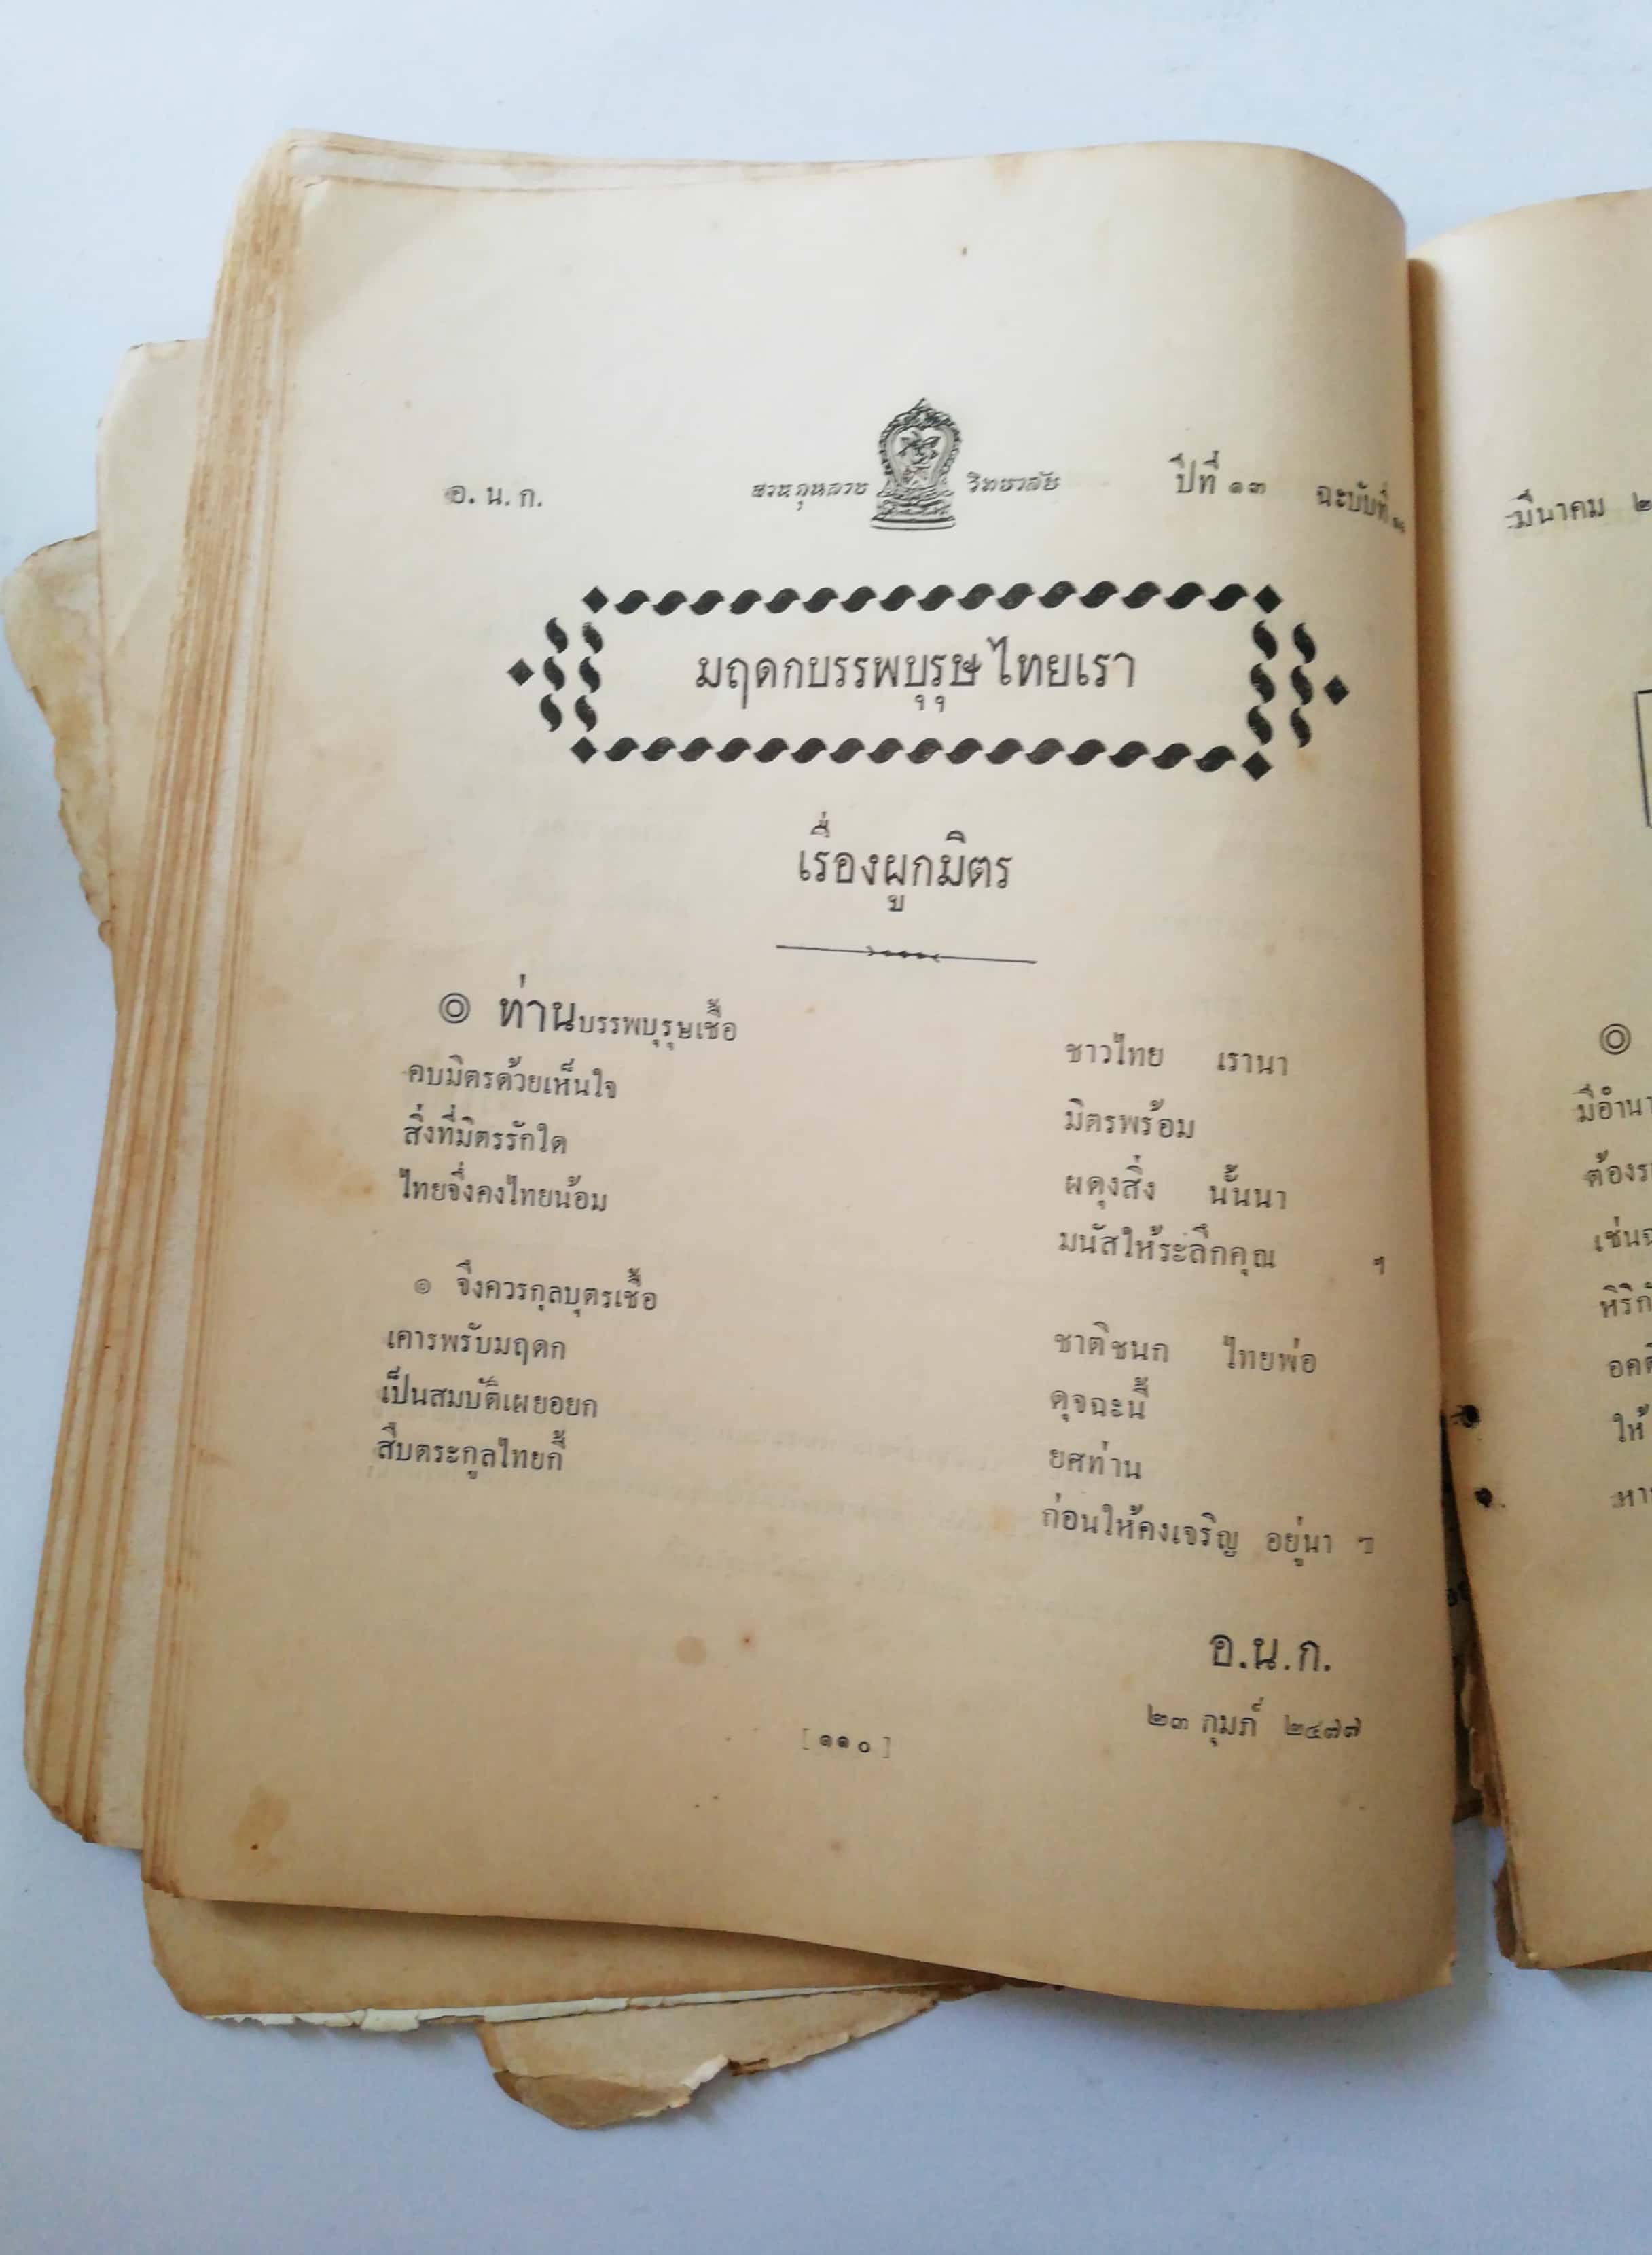 อ. น. ก. สวนกุหลาบ วิทยาลัย ปีที่ ๑๓ ฉะบับที่
มฤดกบรรพบุรุษไทยเรา
เรื่องผูกมิตร
๏ ท่านบรรพบุรุษเชื้อ ชาวไทย เรานา
คบมิตรด้วยเห็นใจ มิตรพร้อม
สิ่งที่มิตรรักใด ผดุงสิ่ง นั้นนา
ไทยจึ่งคงไทยน้อม มนัสให้ระลึกคุณ ฯ
๏ จึงควรกุลบุตรเชื้อ ชาติชนก ไทยพ่อ
เคารพรับมฤดก ดุจฉะนี้
เป็นสมบัติเผยอยก ยศท่าน
สืบตระกูลไทยกี้ ก่อนให้คงเจริญ อยู่นา ฯ
อ.น.ก.
๒๓ กุมภ์ ๒๔๗๗
[๑๑๐]
มีนาคม
๏
ต้อง
ให้